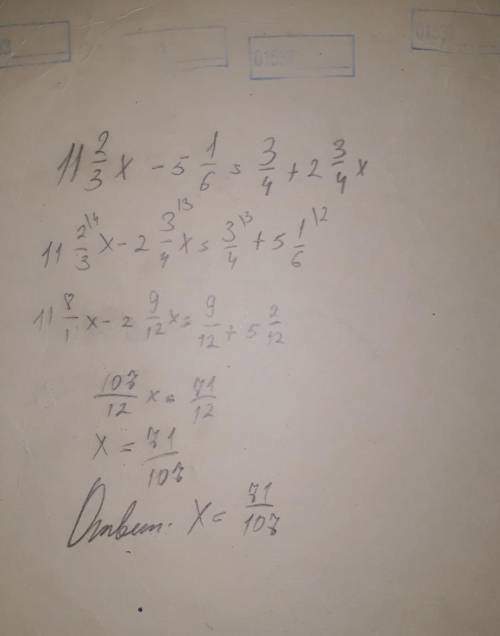 01557
01557
11 2/3 x - 5 1/6 = 3/4 + 2 3/4 x
11 2/3 \4 x - 2 3/4 \3 x = 3/4 \3 + 5 1/6 \2
11 8/1 x - 2 9/12 x = 9/12 + 5 2/12
107/12 x = 71/12
x = 71/107
Ответ: x = 71/107